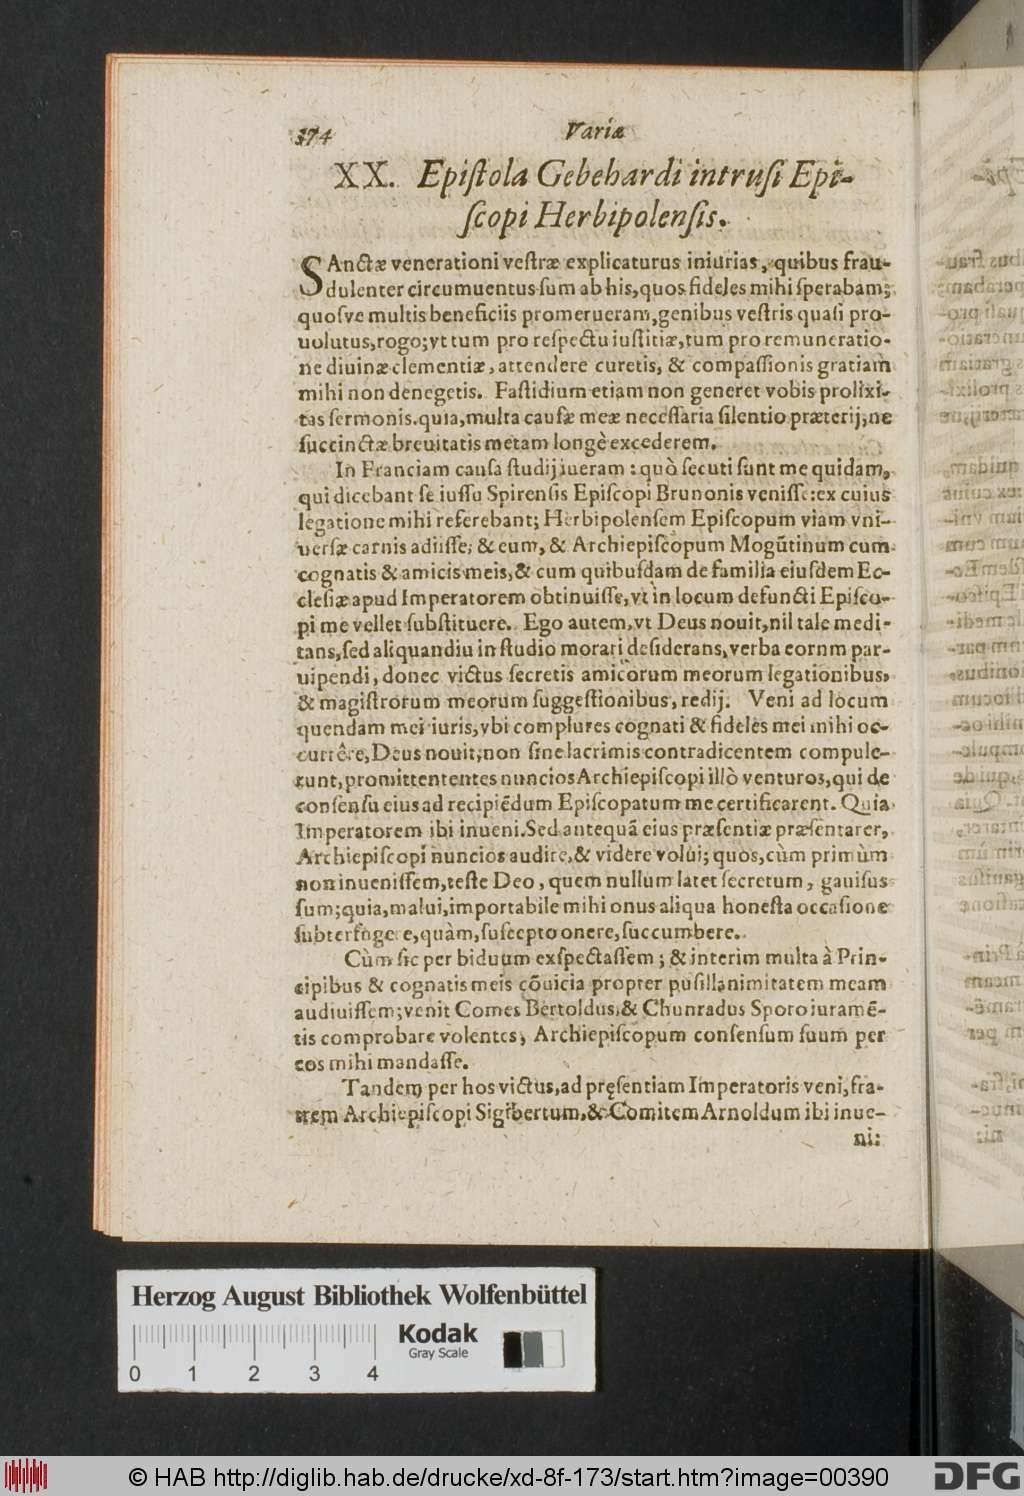 374 Variæ
XX. Epiſtola Gebehardi intruſi Epi-
ſcopi Herbipolenſis.
SAnctæ venerationi veſtræ explicaturus iniurias, quibus frau-
dulenter circumuentus ſum ab his, quos fideles mihi ſperabam;
quoſve multis beneficiis promerueram, genibus veſtris quaſi pro-
uolutus, rogo; vt tum pro reſpectu iuſtitiæ, tum pro remuneratio-
ne diuinæ clementiæ, attendere curetis, & compaſſionis gratiam
mihi non denegetis. Faſtidium etiam non generet vobis prolixi-
tas ſermonis. quia, multa cauſæ meæ neceſſaria ſilentio præterij, ne
ſuccinctæ breuitatis metam longè excederem.
In Franciam cauſa ſtudij iueram: quò ſecuti ſunt me quidam,
qui dicebant ſe iuſſu Spirenſis Epiſcopi Brunonis veniſſe: ex cuius
legatione mihi referebant; Herbipolenſem Epiſcopum viam vni-
verſæ carnis adiiſſe; & eum, & Archiepiſcopum Mogũtinum cum
cognatis & amicis meis, & cum quibuſdam de familia eiuſdem Ec-
cleſiæ apud Imperatorem obtinuiſſe, vt in locum defuncti Epiſco-
pi me vellet ſubſtituere. Ego autem, vt Deus nouit, nil tale medi-
tans, ſed aliquandiu in ſtudio morari deſiderans, verba eornm par-
uipendi, donec victus ſecretis amicorum meorum legationibus,
& magiſtrorum meorum ſuggeſtionibus, redij. Veni ad locum
quendam mei iuris, vbi complures cognati & fideles mei mihi oc-
currêre, Deus nouit, non ſine lacrimis contradicentem compule-
runt, promittententes nuncios Archiepiſcopi illò venturos, qui de
conſenſu eius ad recipiẽdum Epiſcopatum me certificarent. Quia
Imperatorem ibi inueni. Sed antequã eius præſentiæ præſentarer,
Archiepiſcopi nuncios audire, & videre volui; quos, cùm primùm
non inueniſſem, teſte Deo, quem nullum latet ſecretum, gauiſus
ſum; quia, malui, importabile mihi onus aliqua honeſta occaſione
ſubterfugere, quàm, ſuſcepto onere, ſuccumbere.
Cùm ſic per biduum exſpectaſſem; & interim multa à Prin-
cipibus & cognatis meis cõuicia propter puſillanimitatem meam
audiuiſſem; venit Comes Bertoldus, & Chunradus Sporo iuramẽ-
tis comprobare volentes, Archiepiſcopum conſenſum ſuum per
eos mihi mandaſſe.
Tandem per hos victus, ad pręſentiam Imperatoris veni, fra-
trem Archiepiſcopi Sigibertum, & Comitem Arnoldum ibi inue-
ni:
Herzog August Bibliothek Wolfenbüttel
Kodak
Gray Scale
0 1 2 3 4
© HAB http://diglib.hab.de/drucke/xd-8f-173/start.htm?image=00390
DFG